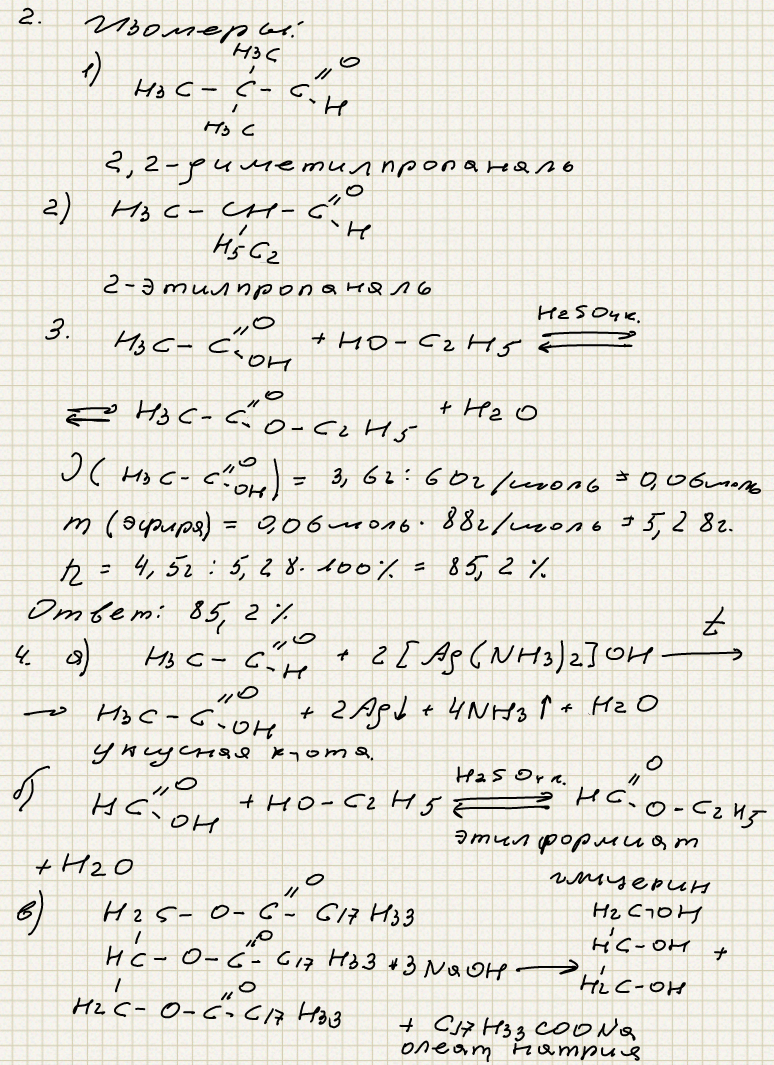 2. Изомеры:
H3C
1) H3C - C - C =O
H
H3C
2,2-диметилпропаналь
2) H3C - CH - C =O
H
H5C2
2-этилпропаналь
3. H3C - C =O OH + HO - C2H5 ⇌ H2SO4 к.
⇌ H3C - C =O O - C2H5 + H2O
ν(H3C - C =O OH) = 3,6г : 60г/моль = 0,06моль
m(эфира) = 0,06моль · 88г/моль = 5,28г.
η = 4,5г : 5,28 · 100% = 85,2%
Ответ: 85,2%
4. а) H3C - C =O H + 2[Ag(NH3)2]OH → t
→ H3C - C =O OH + 2Ag↓ + 4NH3↑ + H2O
уксусная к-ота.
б) HC =O OH + HO - C2H5 ⇌ H2SO4 к. HC =O O - C2H5
этилформиат
+ H2O
глицерин
в) H2S - O - C =O - C17H33 H2C-OH
HC - O - C =O - C17H33 + 3NaOH → HC - OH +
H2C - O - C =O - C17H33 H2C - OH
+ C17H33COONa
олеат натрия